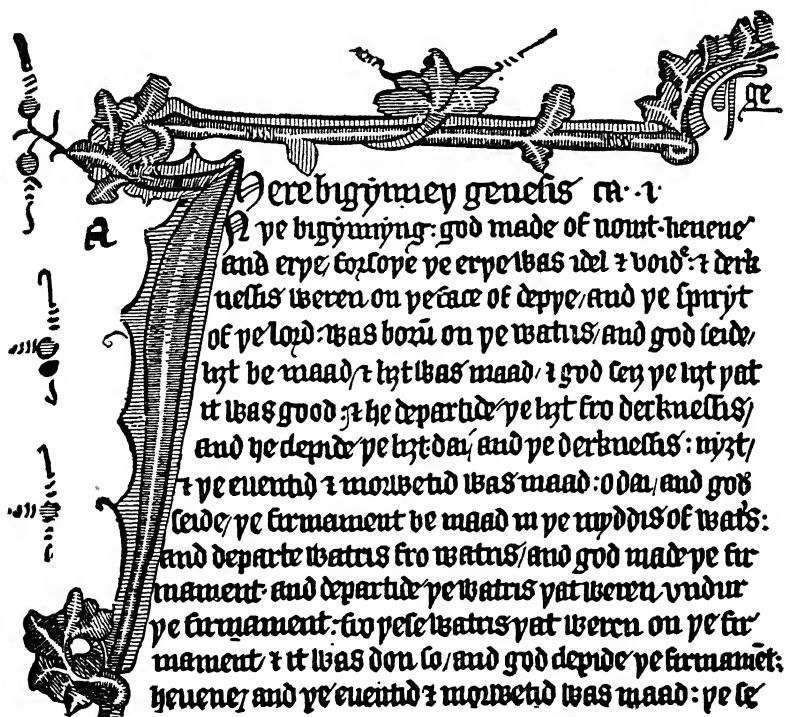 ge
Here bigẏnneþ genesis ca·ı·
A
N þe bigẏnnẏng: god made of nouȝt·heuene
and erþe/ forsoþe þe erþe was idel ⁊ voide: ⁊ derk
nessis weren on þe face of depþe/ and þe spirẏt
of þe lord: was borū on þe watris/ and god seide/
liȝt be maad/ ⁊ liȝt was maad/ ⁊ god seiȝ þe liȝt þat
it was good: ⁊ he departide þe liȝt fro derknessis/
and he clepide þe liȝt·dai/ and þe derknessis: niȝt/
⁊ þe euentid ⁊ morwetid was maad: o dai/ and god
seide/ þe firmament be maad in þe mẏddis of wat's:
and departe watris fro watris/ and god made þe fir
mament· and departide þe watris þat weren vndur
þe firmament: fro þese watris þat weren on þe fir
mament/ ⁊ it was don so/ and god clepide þe firmamēt:
heuene/ and þe euentid ⁊ morwetid was maad: þe se